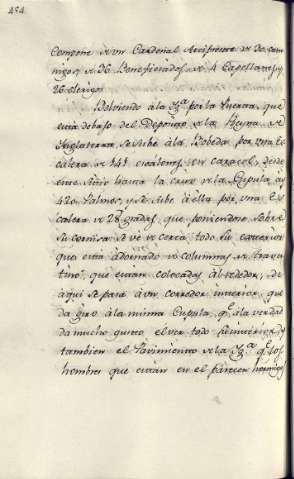 454.
Compone de un Cardenal Arcipreste de 30. cano
nigos, de 36 Beneficiados, de 4 Capellanes, y
26 clerigos
Bolviendo à la Yg.ª por la Puerta, que
està debajo del Deposito de la Reyna de
Inglaterra se sube à la Bobeda por una Es
calera de 141 escalones, en caracol, desde
este sitio hasta la cruz de la Cupula ay
420 Palmos, y se sube à ella por una Es
calera de 28 gradas, que poniendose sobre
su cornisa se vè de cerca todo su exterior
que està adornado de columnas de trave
tino, que estàn colocadas al rededor, de
aqui se pasa à un corredor interior, que
da giro à la misma Cupula, q.e à la verdad
da mucho gusto el ver todo su interior, y
tambien el Pavimiento de la Yg.ª q.e los
hombres que estàn en el parecen hormigas